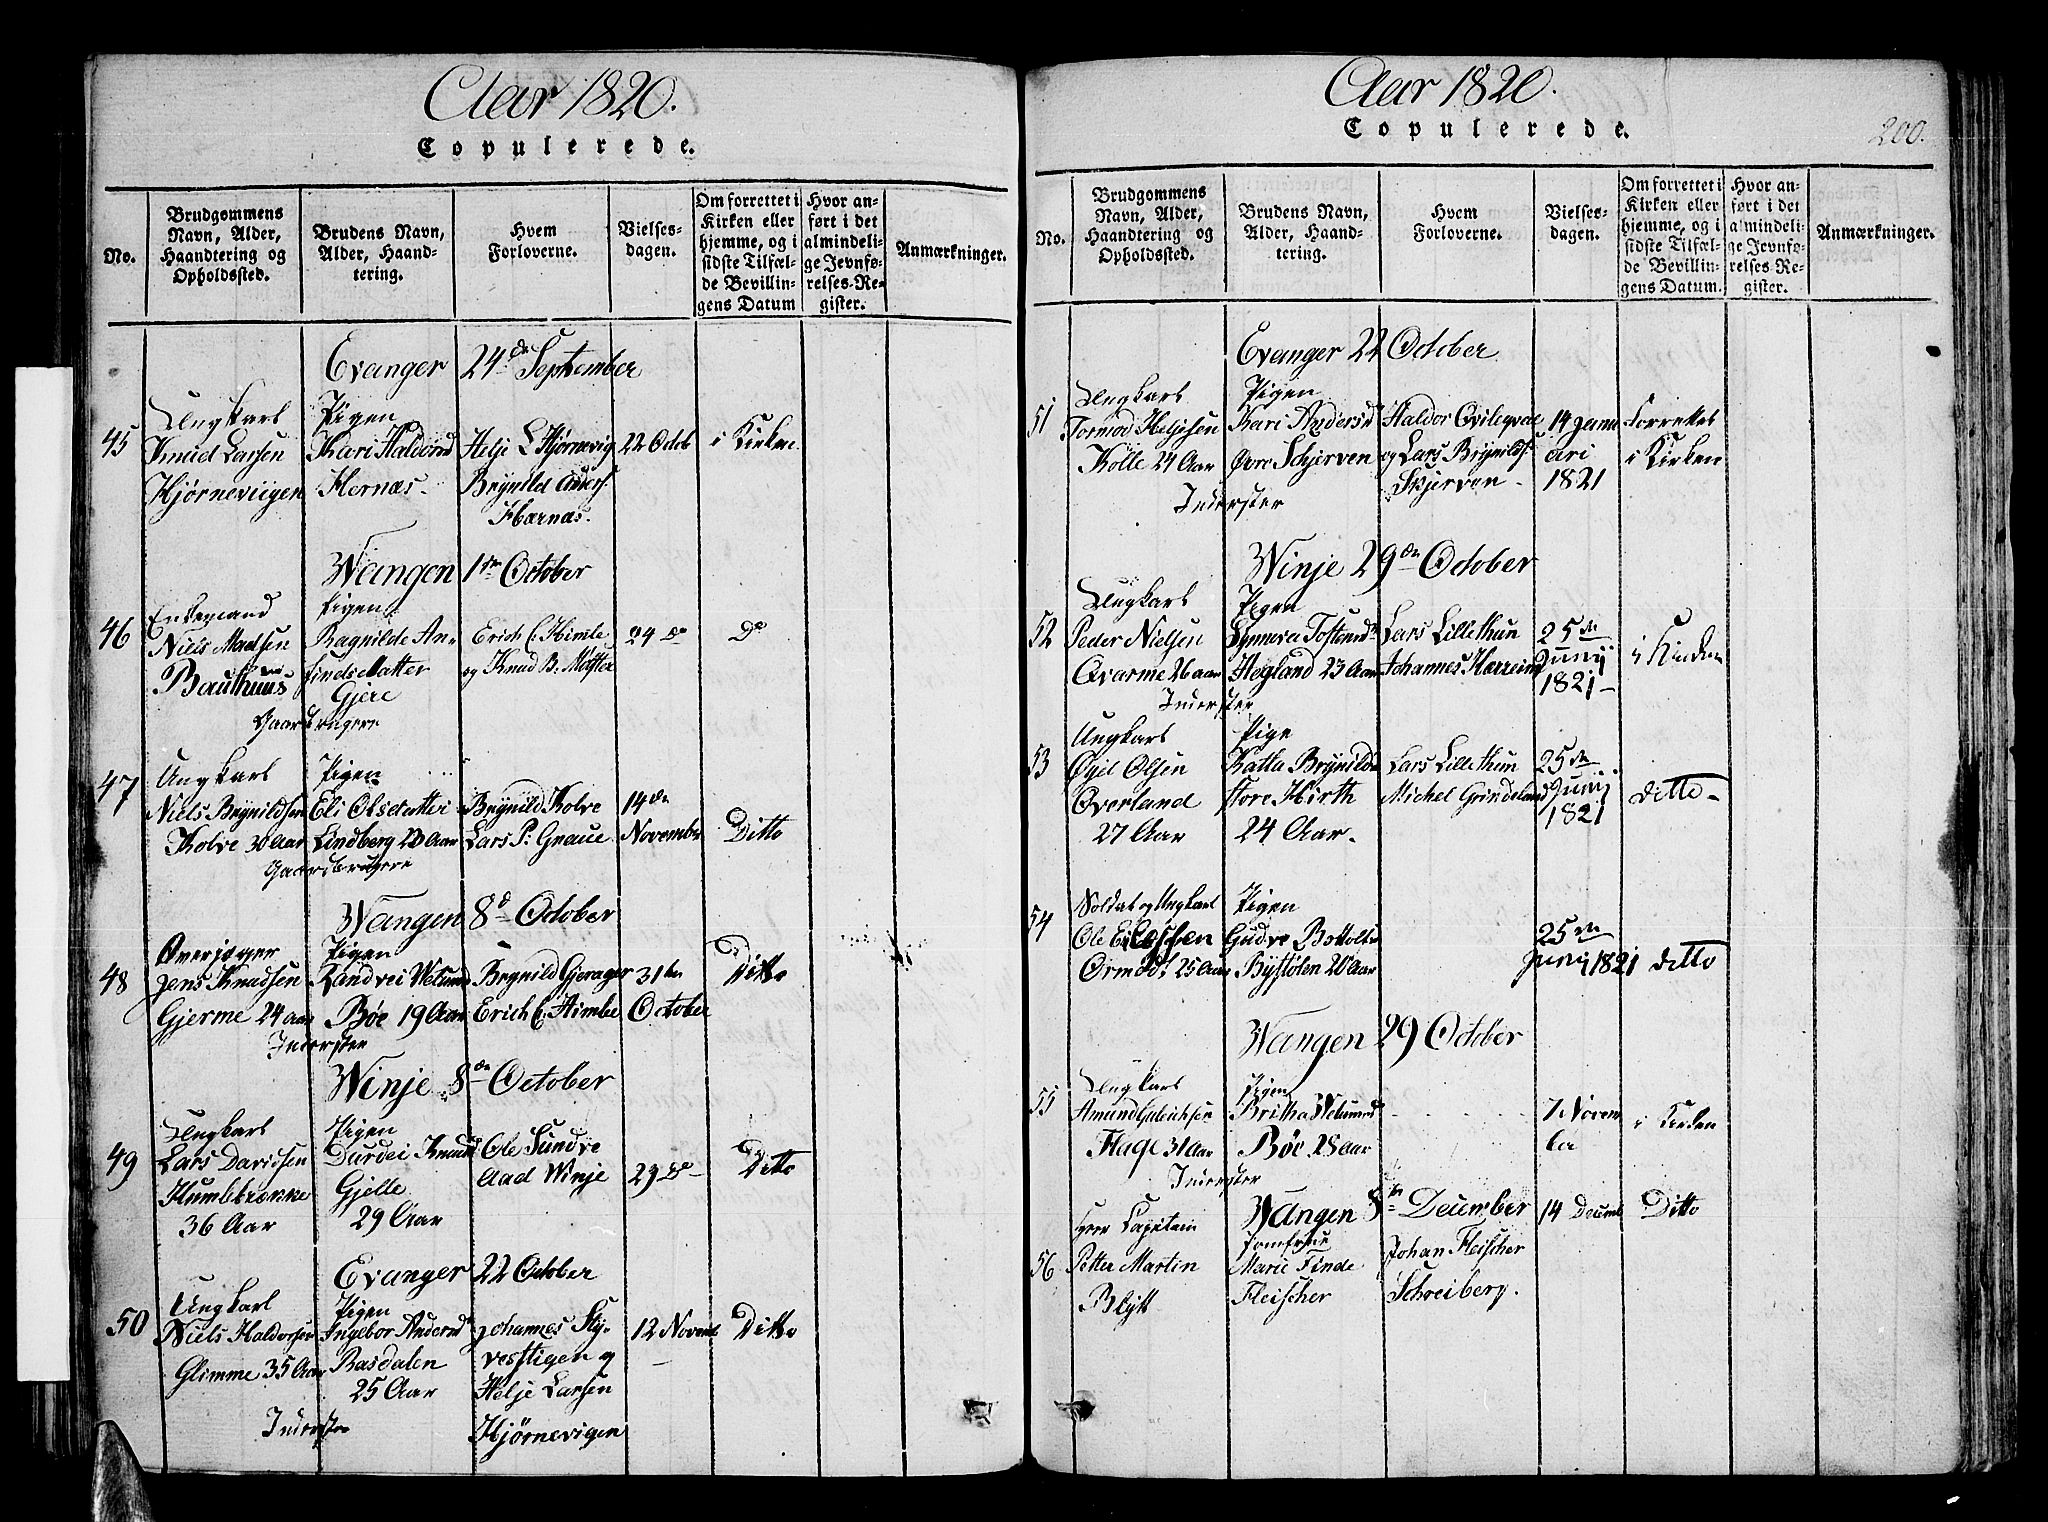 Aar 1820.
Copulerede.
No.
Brudgommens
Navn, Alder,
Haandtering og
Opholdssted.
Brudens Navn,
Alder, Haand-
tering.
Hvem
Forloverne.
Vielses-
dagen.
Om forrettet i
Kirken eller
hjemme, og i
sidste Tilfæl-
de Bevillin-
gens Datum
Hvor an-
ført i det
almindeli-
ge Jevnfø-
relses-Re-
gister.
Anmærkninger.
Evanger 24de September
45
Ungkarl
Knud Larsen
Hjørneviigen
Pigen
Kari Haldorsd
Hernæs.
Helje L Hjørnevig
Brynild Anders
Hærnæs.
22 Octob
i Kirken
Wangen 1ste October
46
Enkemand
Niels Madsen
Bauthuus
Pigen
Ragnilde An-
findsdatter
Gjere
Gaardbrugere
Erich C: Himle
og Knud B: Møster
24 do
Do
47
Ungkarl
Niels Brynildsen
Kolve 30 Aar
Pigen
Eli Olsdatter
Lindberg 20 Aar
Gaardbrugere
Brynild Kolve
Lars P: Graue
14de
November
Ditto
Wangen 8de October
48
Overjæger
Jens Knudsen
Gjerme 24 aar
Pigen
Randvei Wetund
Bøe 19 Aar
Inderster
Brynild Gjerager
Erich C Himle
31ten
October
Ditto
Winje 8de October
49
Ungkarl
Lars Davidsen
Humlebrække
36 Aar
Pigen
Durdei Knuds
Gjelle
29 Aar
Ole Sundve
Aad Winje
29 do
Ditto
Evanger 22 October
50
Ungkarl
Niels Haldorsen
Glimme 35 Aar
Pigen
Ingebor Andersd
Rasdalen
25 Aar
Inderster
Johannes Sty-
vestigen og
Helje Larsen
Hjørnevigen
12 Novemb
Ditto
Aar 1820.
Copulerede.
200.
No.
Brudgommens
Navn, Alder,
Haandtering og
Opholdssted.
Brudens Navn,
Alder, Haand-
tering.
Hvem
Forloverne.
Vielses-
dagen.
Om forrettet i
Kirken eller
hjemme, og i
sidste Tilfæl-
de Bevillin-
gens Datum.
Hvor an-
ført i det
almindeli-
ge Jevnfø-
relses-Re-
gister.
Anmærkninger.
Evanger 22 October
51
Ungkarl
Tormod Heljesen
Kolle 24 Aar
Pigen
Kari Andersd
Øvre Schjerven
Inderster
Haldor Qvileqval
og Lars Brynilds
Skjerven
14 Janu
ari
1821
Forrettet
i Kirken
Winje 29de October
52
Ungkarl
Peder Nielsen
Qvarme 26 aar
Pigen
Synneva Tostensd
Hegland 23 Aar
Inderster
Lars Lillethun
Johannes Herreim
25de
Junij
1821
i Kirken
53
Ungkarl
Øyel Olsen
Øverland
27 Aar
Pige
Katla Brynilds
store Hirth
24 Aar.
Lars Lillethun
Michel Grindeland
25de
Junij
1821
ditto
54
Soldat og Ungkarl
Ole
Ormod 25 Aar
Pigen
Gudve Bottolfs
Bystølen 20 Aar
25de
Junij 1821
ditto
Wangen 29 October
55
Ungkarl
Amund
Flage 31 Aar
Pigen
Britha Wetund
Bøe 28 aar
Inderster
7 Novem
ber
i Kirken
Wangen 8de December
56
Herr Capitain
Petter Martin
Blytt
Jomfrue
Marie Finde
Fleischer
Johan Fleischer
Schreiberg.
14 Decemb
Ditto